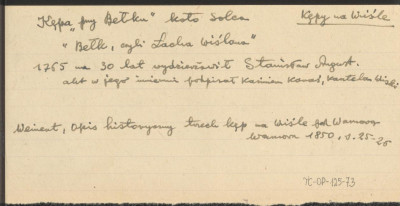 Kępa "przy Bełku" koło Solca
Kępy na Wiśle
"Bełk, czyli Łacha Wiślana"
1765 na 30 lat wydzierżawił Stanisław August.
akt w jego imieniu podpisał
Weinert, Opis historyczny trzech kęp na Wiśle pod Warszawą
Warszawa 1850, s. 25-26